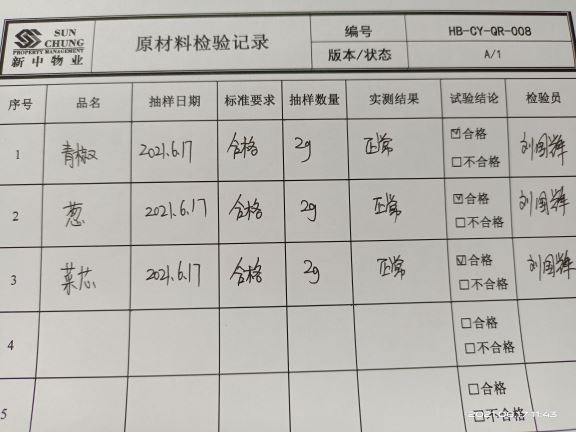 SUN CHUNG
PROPERTY MANAGEMENT
新中物业
原材料检验记录
编号 HB-CY-QR-008
版本/状态 A/1
序号 品名 抽样日期 标准要求 抽样数量 实测结果 试验结论 检验员
1 青椒 2021.6.17 合格 2g 正常 ☑合格 □不合格 刘国辉
2 葱 2021.6.17 合格 2g 正常 ☑合格 □不合格 刘国辉
3 菜芯 2021.6.17 合格 2g 正常 ☑合格 □不合格 刘国辉
4 □合格 □不合格
5 □合格 □不合格